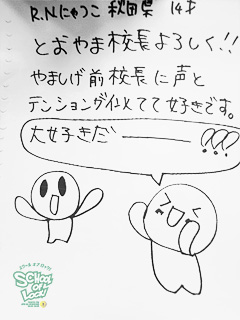 R.N にゃっこ 秋田県 14才
とおやま校長よろしく!!
やましげ前校長に声と
テンションが似てて好きです。
大好きだ———!!!
SCHOOL OF LOCK!